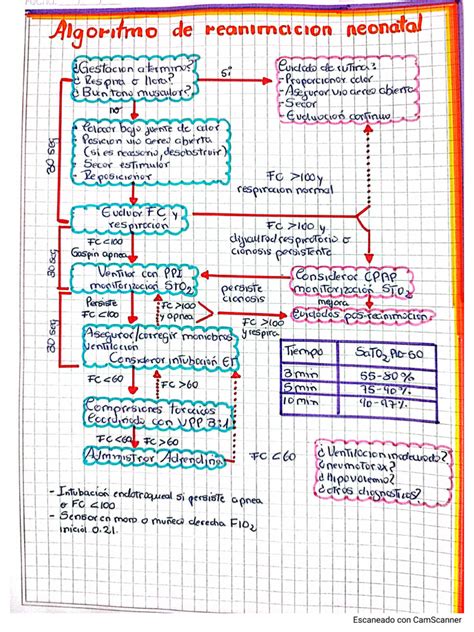 Algoritmo de reanimacion neonatal
¿Gestacion a termino?
¿Respira o llora?
¿Buen tono muscular?
si
Cuidado de rutina:
- Proporcionar calor
- Asegurar via aerea abierta
- Secar
- Evaluación continua
no
30 seg
- Colocar bajo fuente de calor
- Posicion via aerea abierta
(si es necesario, desobstruir)
- Secar estimular
- Reposicionar
FC >100 y
respiracion normal
Evaluar FC y
respiración
FC >100 y
dificultad respiratoria o
cianosis persistente
FC <100
Gaspin apnea
30 seg
Ventilar con PPI
monitorización STO2
persiste
cianosis
Considerar CPAP
monitorización STO2
mejora
Persiste
FC <100
FC >100
y apnea
FC >100
y respira
Cuidados post-reanimacion
30 seg
Asegurar/corregir maniobras
ventilacion
Considerar intubación ET
Tiempo
SaTO2
3 min
55-80%
5 min
75-90%
10 min
90-97%
FC <60
FC >60
Compresiones toracicas
Coordinado con VPP 3:1
FC <60
FC >60
Administrar Adrenalina
FC <60
¿Ventilacion adecuada?
¿neumotorax?
¿Hipovolemia?
¿otros diagnosticos?
- Intubación endotraqueal si persiste apnea
o FC <100
- Sensor en mano o muñeca derecha FIO2
inicial 0.21.
Escaneado con CamScanner